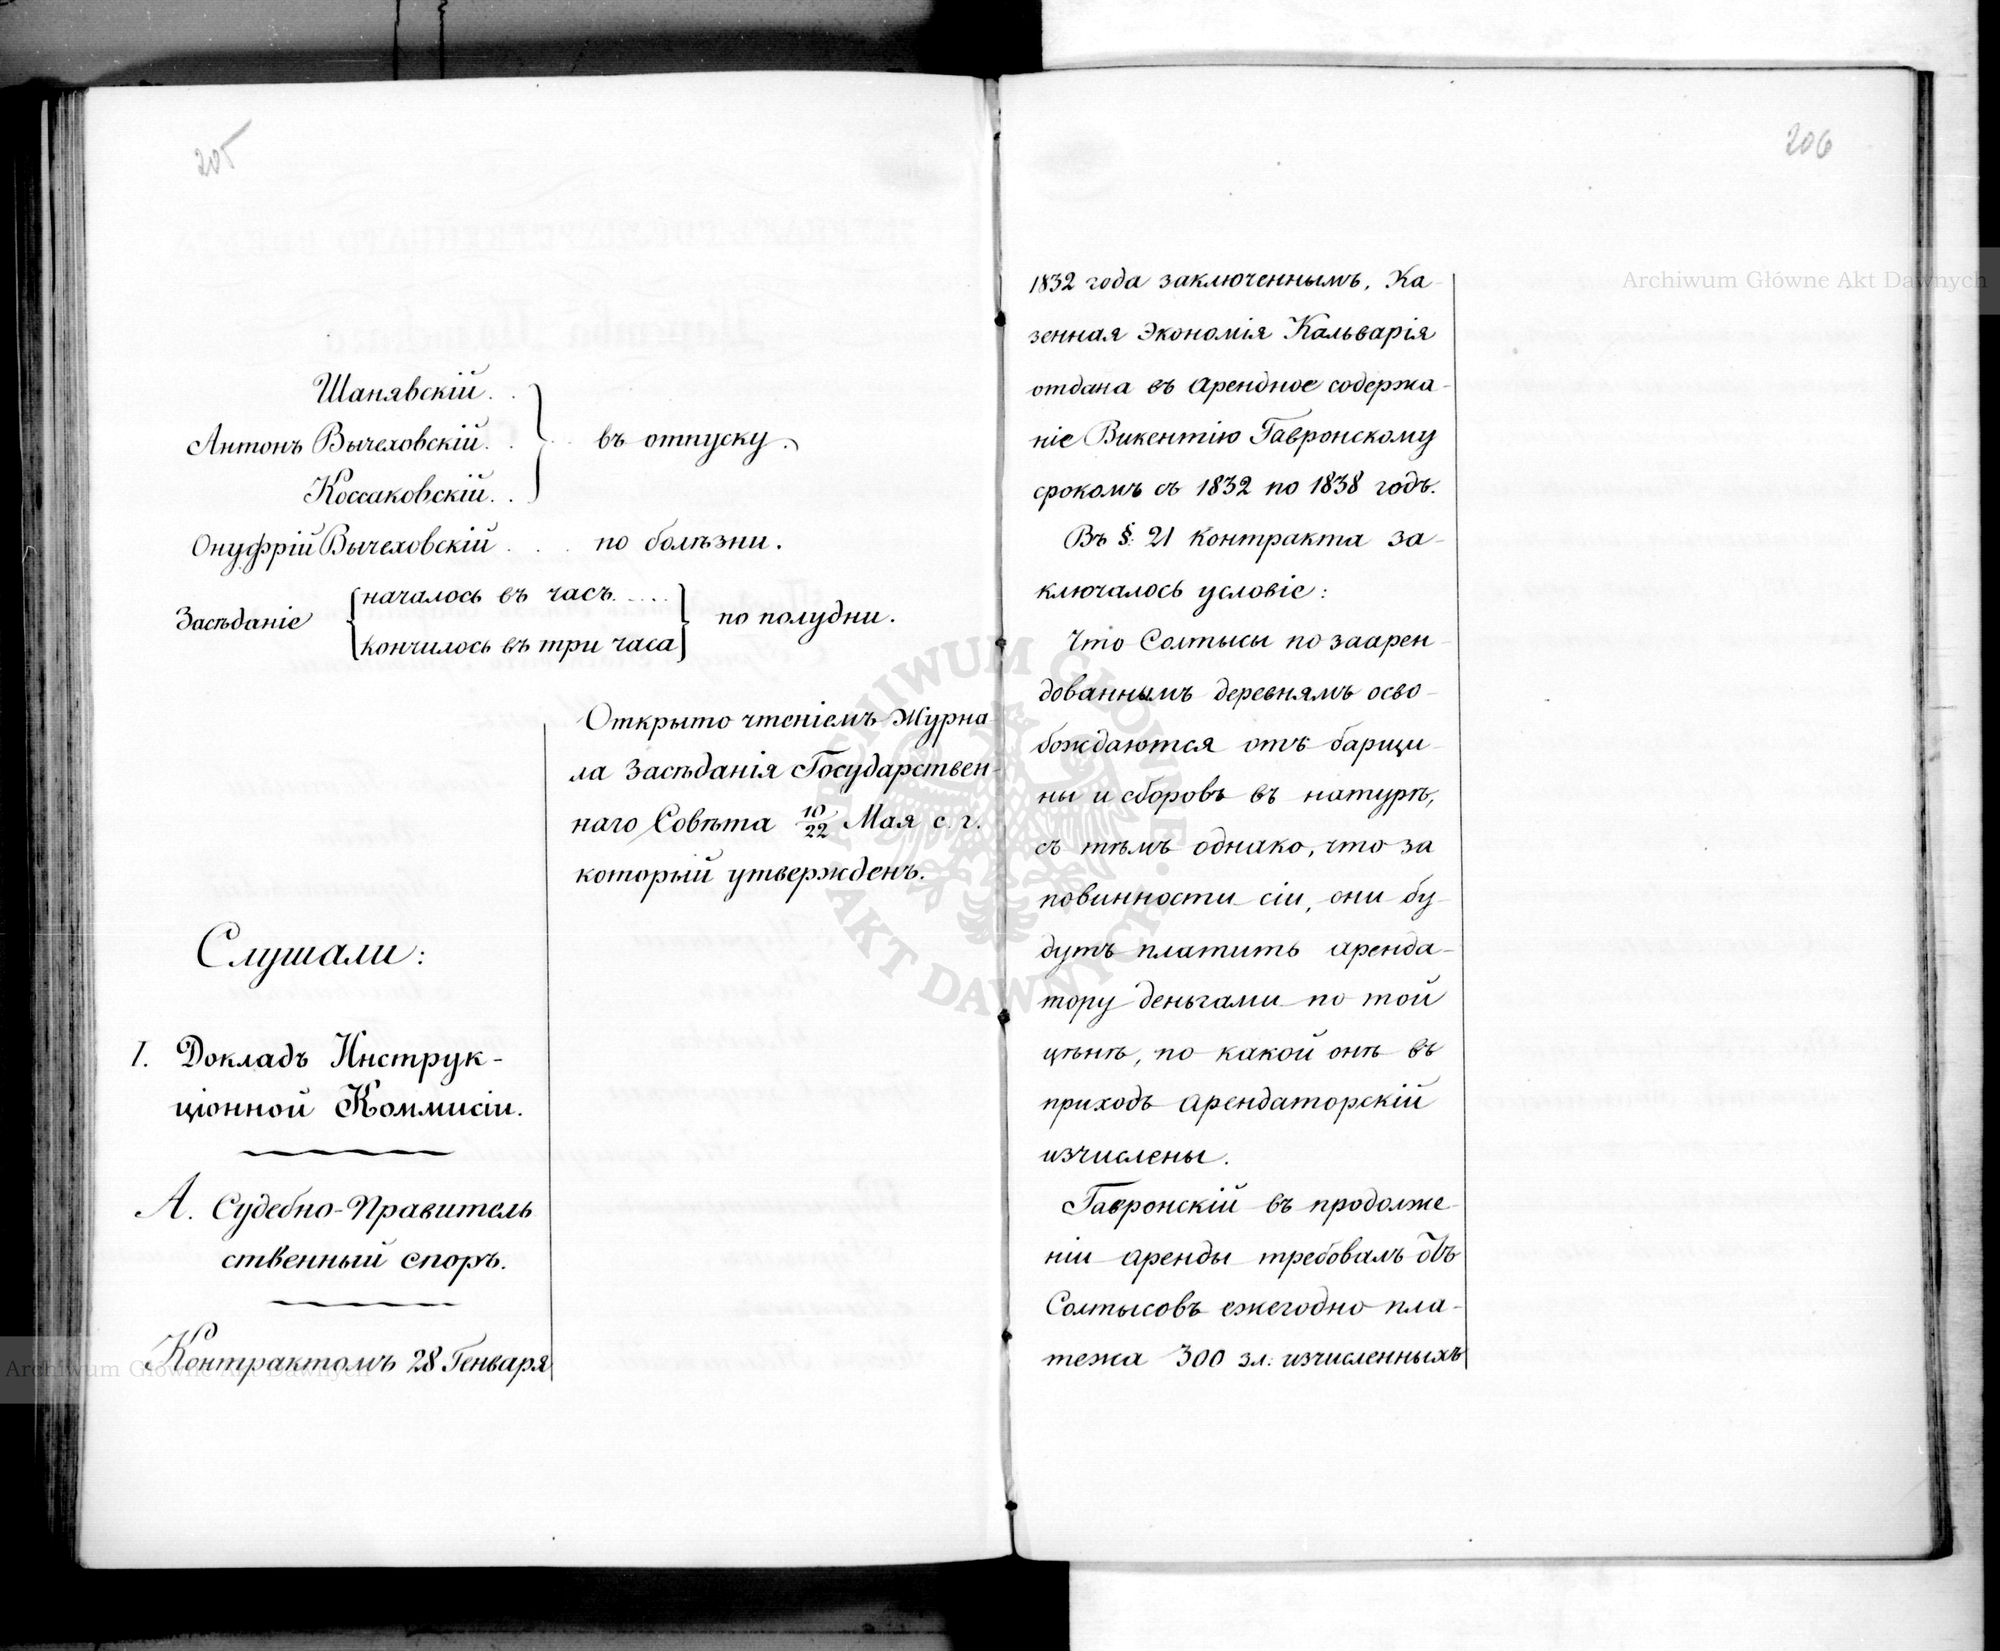 205
Шанявскій. .
Антонъ Вычеховскій. . . . въ отпуску.
Коссаковскій. .
Онуфрій Вычеховскій . . . по болѣзни.
Засѣданіе
началось въ часъ. ....
кончилось въ три часа
по полудни.
Открыто чтеніемъ Журна-
ла Засѣданія Государствен-
наго Совѣта 10/22 Мая с. г.
который утвержденъ.
Слушали:
I. Докладъ Инструк-
ціонной Коммисіи.
А. Судебно-Правитель
ственный споръ.
Контрактомъ 28 Генваря
206
1832 года заключеннымъ, Ка-
зенная Экономія Кальварія
отдана въ арендное содержа-
ніе Викентію Гавронскому
срокомъ съ 1832 по 1838 годъ.
Въ §. 21 контракта за-
ключалось условіе:
Что Солтысы по заарен-
дованнымъ деревнямъ осво-
бождаются отъ барщи-
ны и сборовъ въ натурѣ,
съ тѣмъ однако, что за
повинности сіи, они бу-
дутъ платить аренда-
тору деньгами по той
цѣнѣ, по какой онѣ въ
приходъ арендаторскій
изчислены.
Гавронскій въ продолже-
ніи аренды требовалъ отъ
Солтысовъ ежегодно пла-
тежа 300 зл. изчисленныхъ
Archiwum Główne Akt Dawnych
Archiwum Główne Akt Dawnych
ARCHIWUM GŁÓWNE AKT DAWNYCH